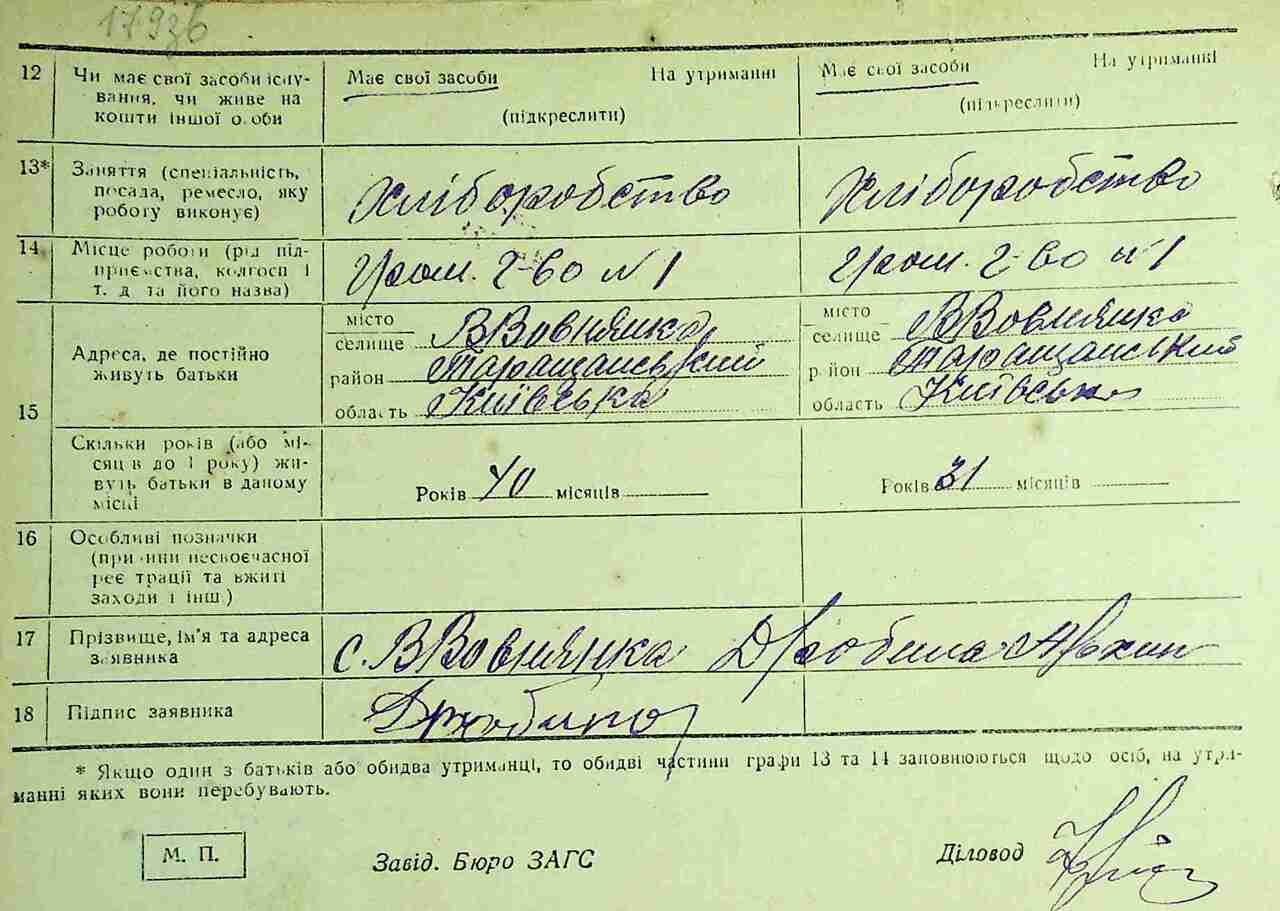 179зб
12 Чи має свої засоби існу- Має свої засоби На утриманні Має свої засоби На утриманні
вання, чи живе на
кошти іншої особи (підкреслити) (підкреслити)
13* Заняття (спеціальність,
посада, ремесло, яку Хліборобство Хліборобство
роботу виконує)
14 Місце роботи (рід під-
приємства, колгосп і Гром. г-во №1 Гром. г-во №1
т. д та його назва)
місто місто
селище В Вовнянка селище В Вовнянка
Адреса, де постійно
живуть батьки район Таращанський район Таращанський
15 область Київська область Київськ
Скільки років (або мі-
сяців до 1 року) жи-
вуть батьки в даному Років 40 місяців Років 31 місяців
місці
16 Особливі позначки
(причини несвоєчасної
реєстрації та вжиті
заходи і інш.)
17 Прізвище, ім'я та адреса с. В Вовнянка Дробина Архип
заявника
18 Підпис заявника
* Якщо один з батьків або обидва утриманці, то обидві частини графи 13 та 14 заповнюються щодо осіб, на утри-
манні яких вони перебувають.
М. П. Завід. Бюро ЗАГС Діловод